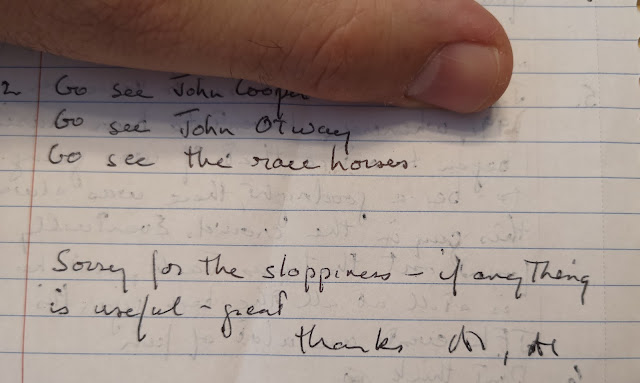 2 Go see John Cooper
Go see John Otway
Go see the race horses.
Sorry for the sloppiness - if anything
is useful - great
thanks